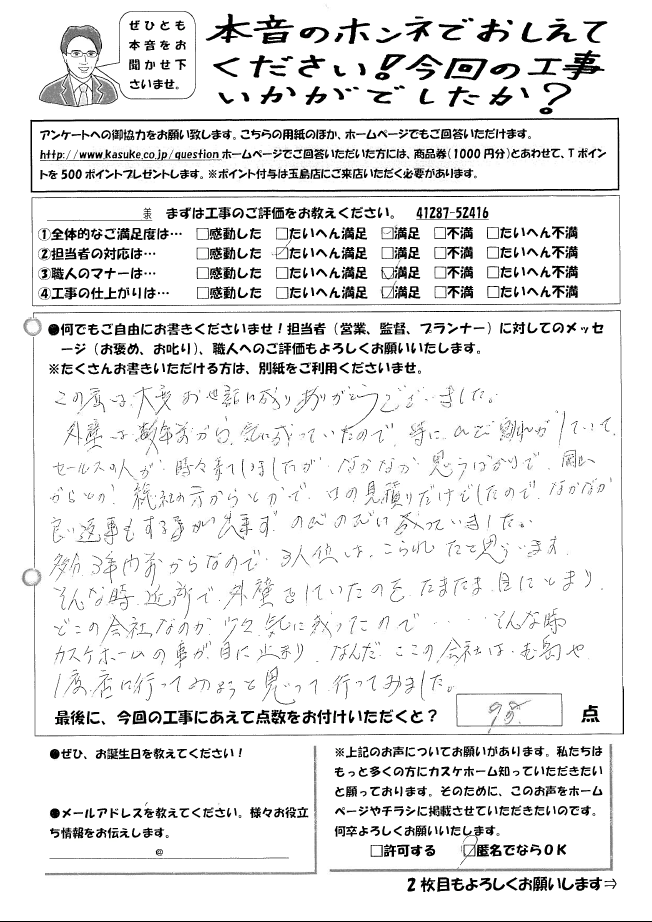 ぜひとも
本音をお
聞かせ下
さいませ。
本音のホンネでおしえて
ください!今回の工事
いかがでしたか?
アンケートへの御協力をお願い致します。こちらの用紙のほか、ホームページでもご回答いただけます。
http://www.kasuke.co.jp/question ホームページでご回答いただいた方には、商品券(1000円分)とあわせて、Tポイン
トを500ポイントプレゼントします。※ポイント付与は玉島店にご来店いただく必要があります。
様 まずは工事のご評価をお教えください。 41287-52416
①全体的なご満足度は… □感動した □たいへん満足 ☑満足 □不満 □たいへん不満
②担当者の対応は… □感動した ☑たいへん満足 □満足 □不満 □たいへん不満
③職人のマナーは… □感動した □たいへん満足 ☑満足 □不満 □たいへん不満
④工事の仕上がりは… □感動した □たいへん満足 ☑満足 □不満 □たいへん不満
●何でもご自由にお書きくださいませ!担当者(営業、監督、プランナー)に対してのメッセ
ージ(お褒め、お叱り)、職人へのご評価もよろしくお願いいたします。
※たくさんお書きいただける方は、別紙をご利用くださいませ。
この度は大変お世話に成りありがとうございました。
外壁は数年前から気に成っていたので、特にひび割れがしていて、
セールスの人が時々来ていましたが なかなか思うばかりで、岡山
からとか、総社の方からとかで、口の見積りだけでしたので、なかなか
良い返事もする事が出来ず のびのびに成っていました。
多分3年内前からなので 3人位は、こられたと思います。
そんな時 近所で、外壁をしていたのを たまたま目にとまり、
どこの会社なのか 少々気に成ったので・・・・・そんな時
カスケホームの事が目に止まり、なんだ ここの会社は 玉島や
1度、店に行ってみようと思って行ってみました。
最後に、今回の工事にあえて点数をお付けいただくと? 98. 点
●ぜひ、お誕生日を教えてください!
●メールアドレスを教えてください。様々お役立
ち情報をお伝えします。
@
※上記のお声についてお願いがあります。私たちは
もっと多くの方にカスケホーム知っていただきたい
と願っております。そのために、このお声をホーム
ページやチラシに掲載させていただきたいのです。
何卒よろしくお願いいたします。
□許可する ☑匿名でならOK
2枚目もよろしくお願いします⇒